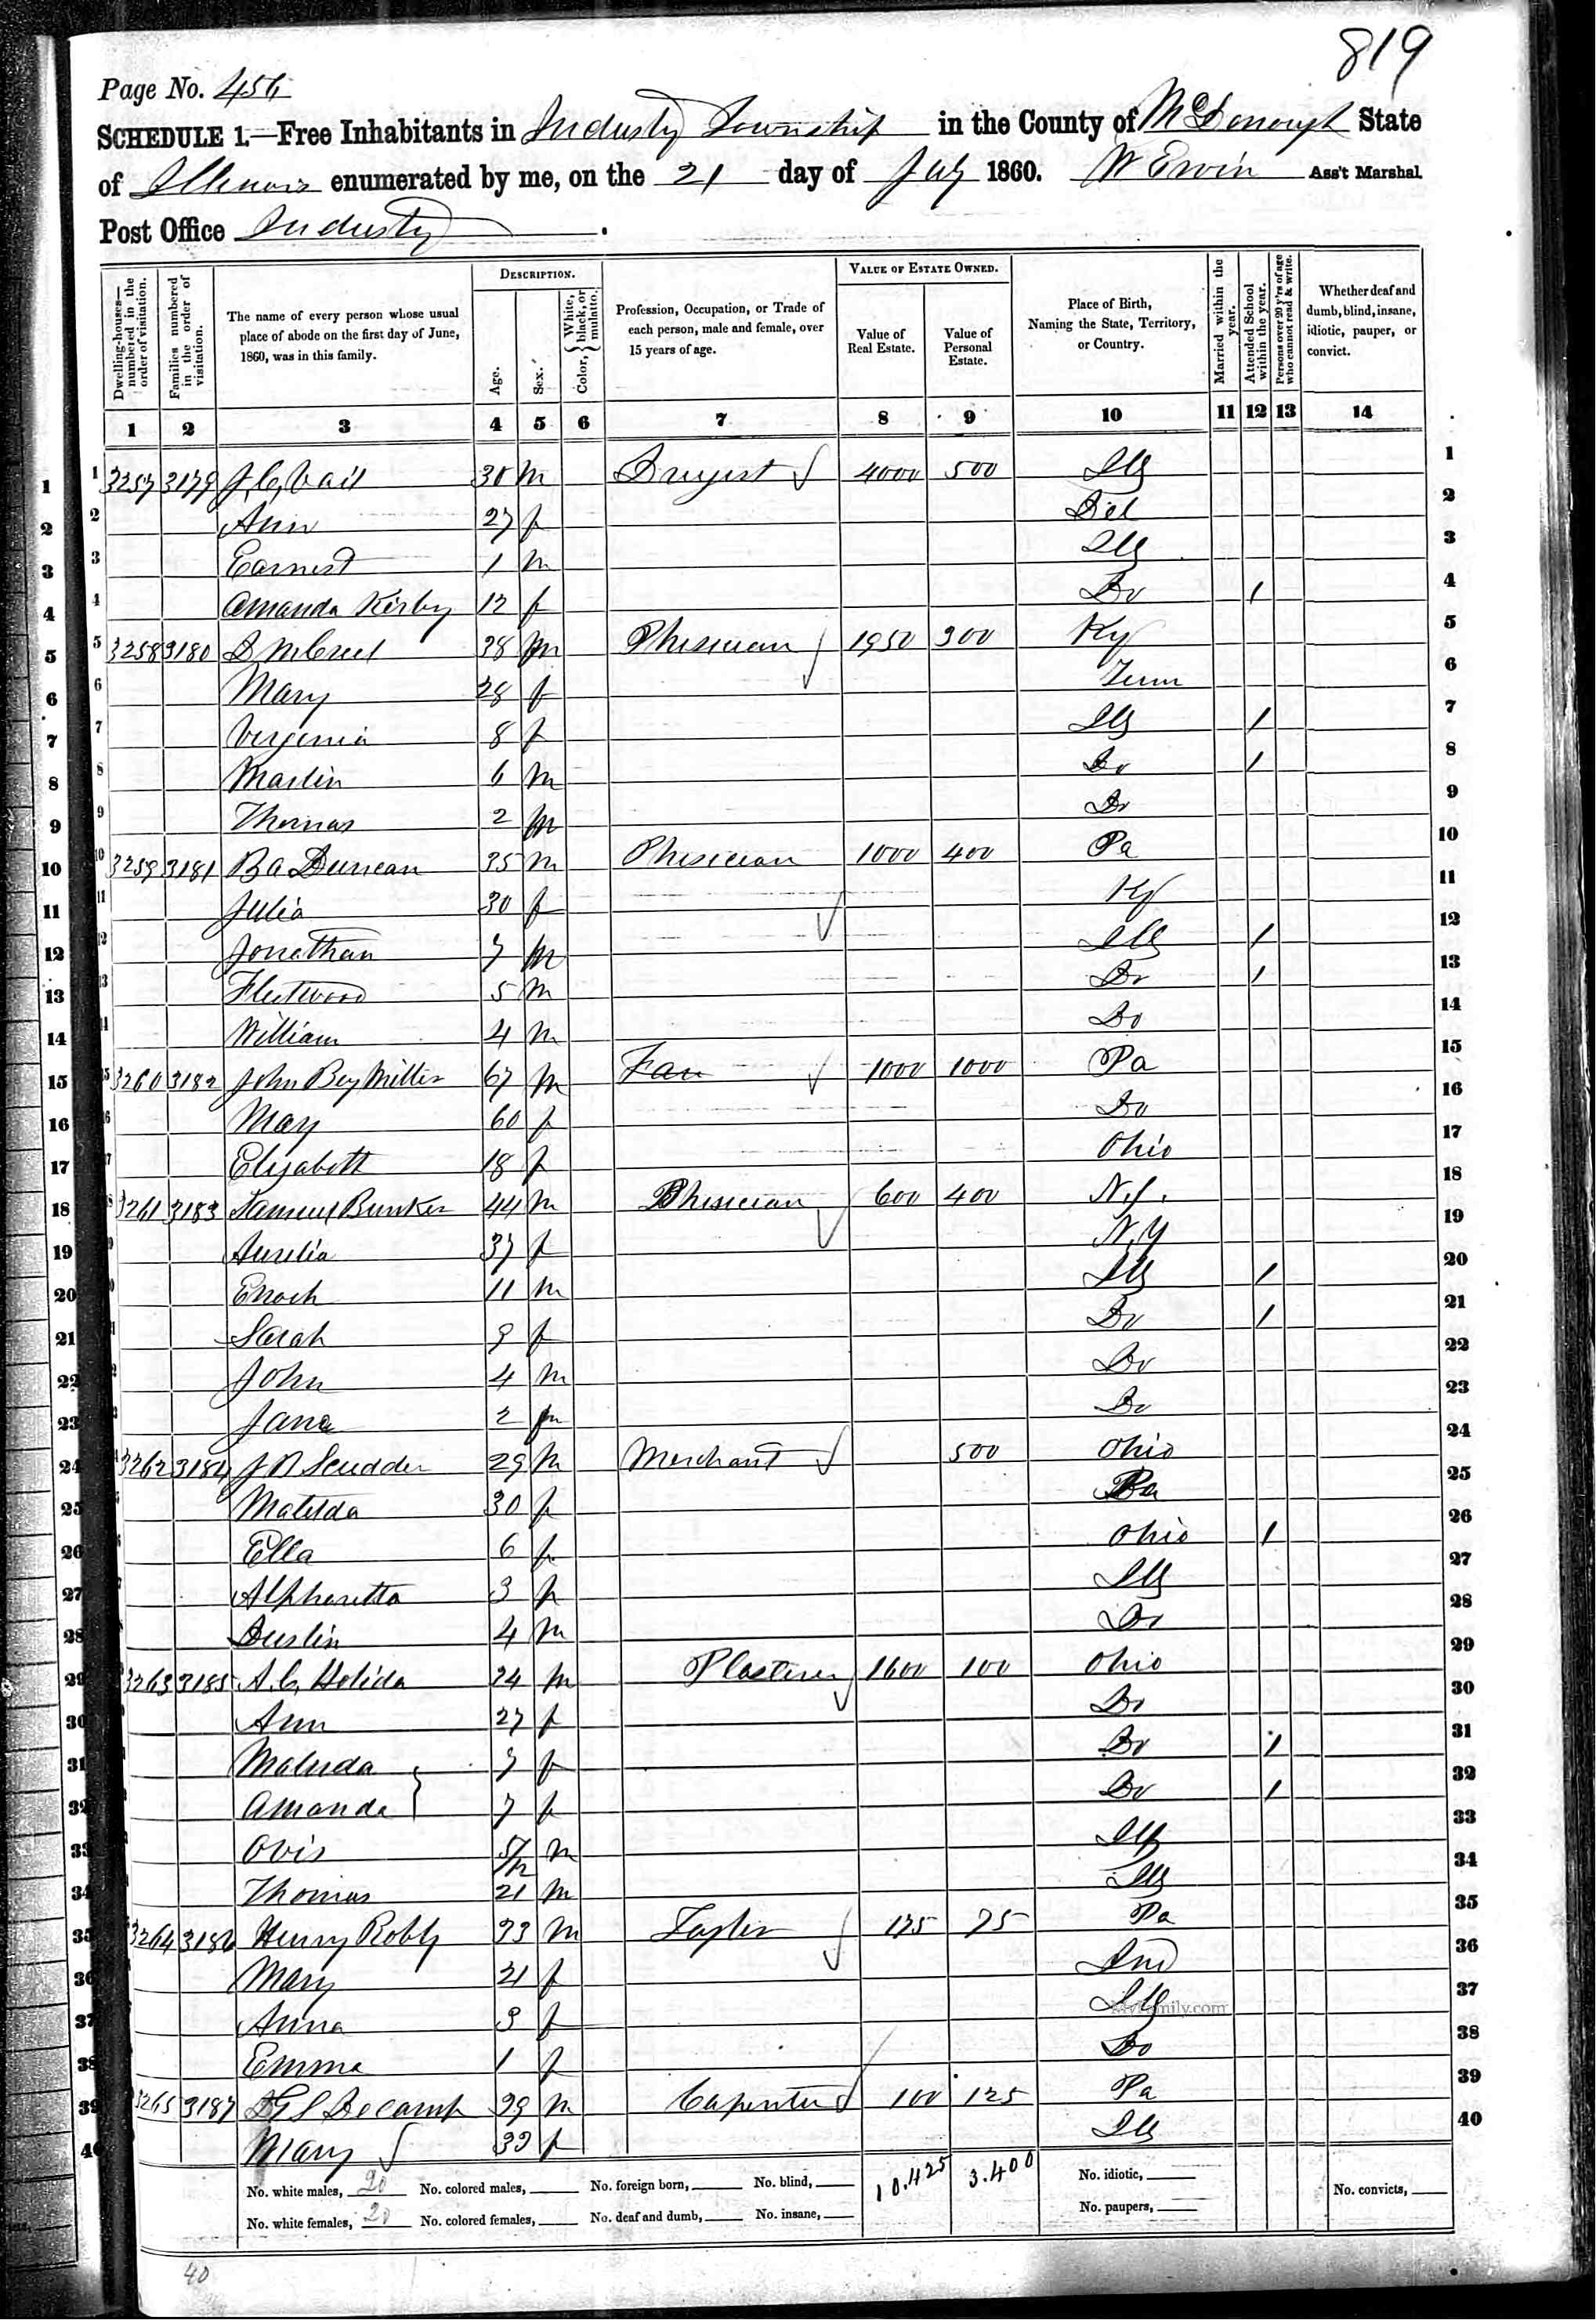 819
Page No. 456
SCHEDULE 1.—Free Inhabitants in Industry Township in the County of McDonough State
of Illinois enumerated by me, on the 21 day of July 1860. W Ervin Ass't Marshal.
Post Office Industry
Dwelling-houses—numbered in the order of visitation. Families numbered in the order of visitation. The name of every person whose usual place of abode on the first day of June, 1860, was in this family. DESCRIPTION. Age. Sex. Color, { White, black, or mulatto. Profession, Occupation, or Trade of each person, male and female, over 15 years of age. VALUE OF ESTATE OWNED. Value of Real Estate. Value of Personal Estate. Place of Birth, Naming the State, Territory, or Country. Married within the year. Attended School within the year. Persons over 20 y'rs of age who cannot read & write. Whether deaf and dumb, blind, insane, idiotic, pauper, or convict.
1 2 3 4 5 6 7 8 9 10 11 12 13 14
1 3257 3179 J. C. Vail 30 m Drugist 4000 500 Ills 1
2 Ann 27 f Del 2
3 Earnest 1 m Ills 3
4 Amanda Kirby 12 f Do / 4
5 3258 3180 38 m Phisician 1950 300 Ky 5
6 Mary 28 f Tenn 6
7 Virginia 8 f Ills / 7
8 Martin 6 m Do / 8
9 Thomas 2 m Do 9
10 3259 3181 B A Duncan 35 m Phisician 1000 400 Pa 10
11 Julia 30 f Ky 11
12 Jonathan 7 m Ills / 12
13 Fleetwood 5 m Do / 13
14 William 4 m Do 14
15 3260 3182 John Bey Miller 67 m Far 1000 1000 Pa 15
16 Mary 60 f Do 16
17 Elizabeth 18 f Ohio 17
18 3261 3183 Samuel Bunker 44 m Phisician 600 400 N.J. 18
19 Aurelia 37 f N.Y 19
20 Enoch 11 m Ills / 20
21 Sarah 9 f Do / 21
22 John 4 m Do 22
23 Jane 2 f Do 23
24 3262 3184 Scudder 29 m Merchant 500 Ohio 24
25 Matilda 30 f Pa 25
26 Ella 6 f Ohio / 26
27 Alpharetta 3 f Ills 27
28 Dustin 4 m Do 28
29 3263 3185 A. C. Holida 24 m Plasterer 1600 100 Ohio 29
30 Ann 27 f Do 30
31 Malinda 7 f Do / 31
32 Amanda 7 f Do / 32
33 Ovis 5/12 m Ills 33
34 Thomas 21 m Ills 34
35 3264 3186 Henry Robly 23 m 125 75 Pa 35
36 Mary 21 f Ind 36
37 Anna 3 f Ills 37
MyFamily.com
38 Emma 1 f Do 38
39 3265 3187 Decamp 39 m Carpenter 100 125 Pa 39
40 Mary 33 f Ills 40
No. white males, 20 No. colored males, No. foreign born, No. blind, 10.425 3.400 No. idiotic, No. convicts,
No. white females, 20 No. colored females, No. deaf and dumb, No. insane, No. paupers,
40